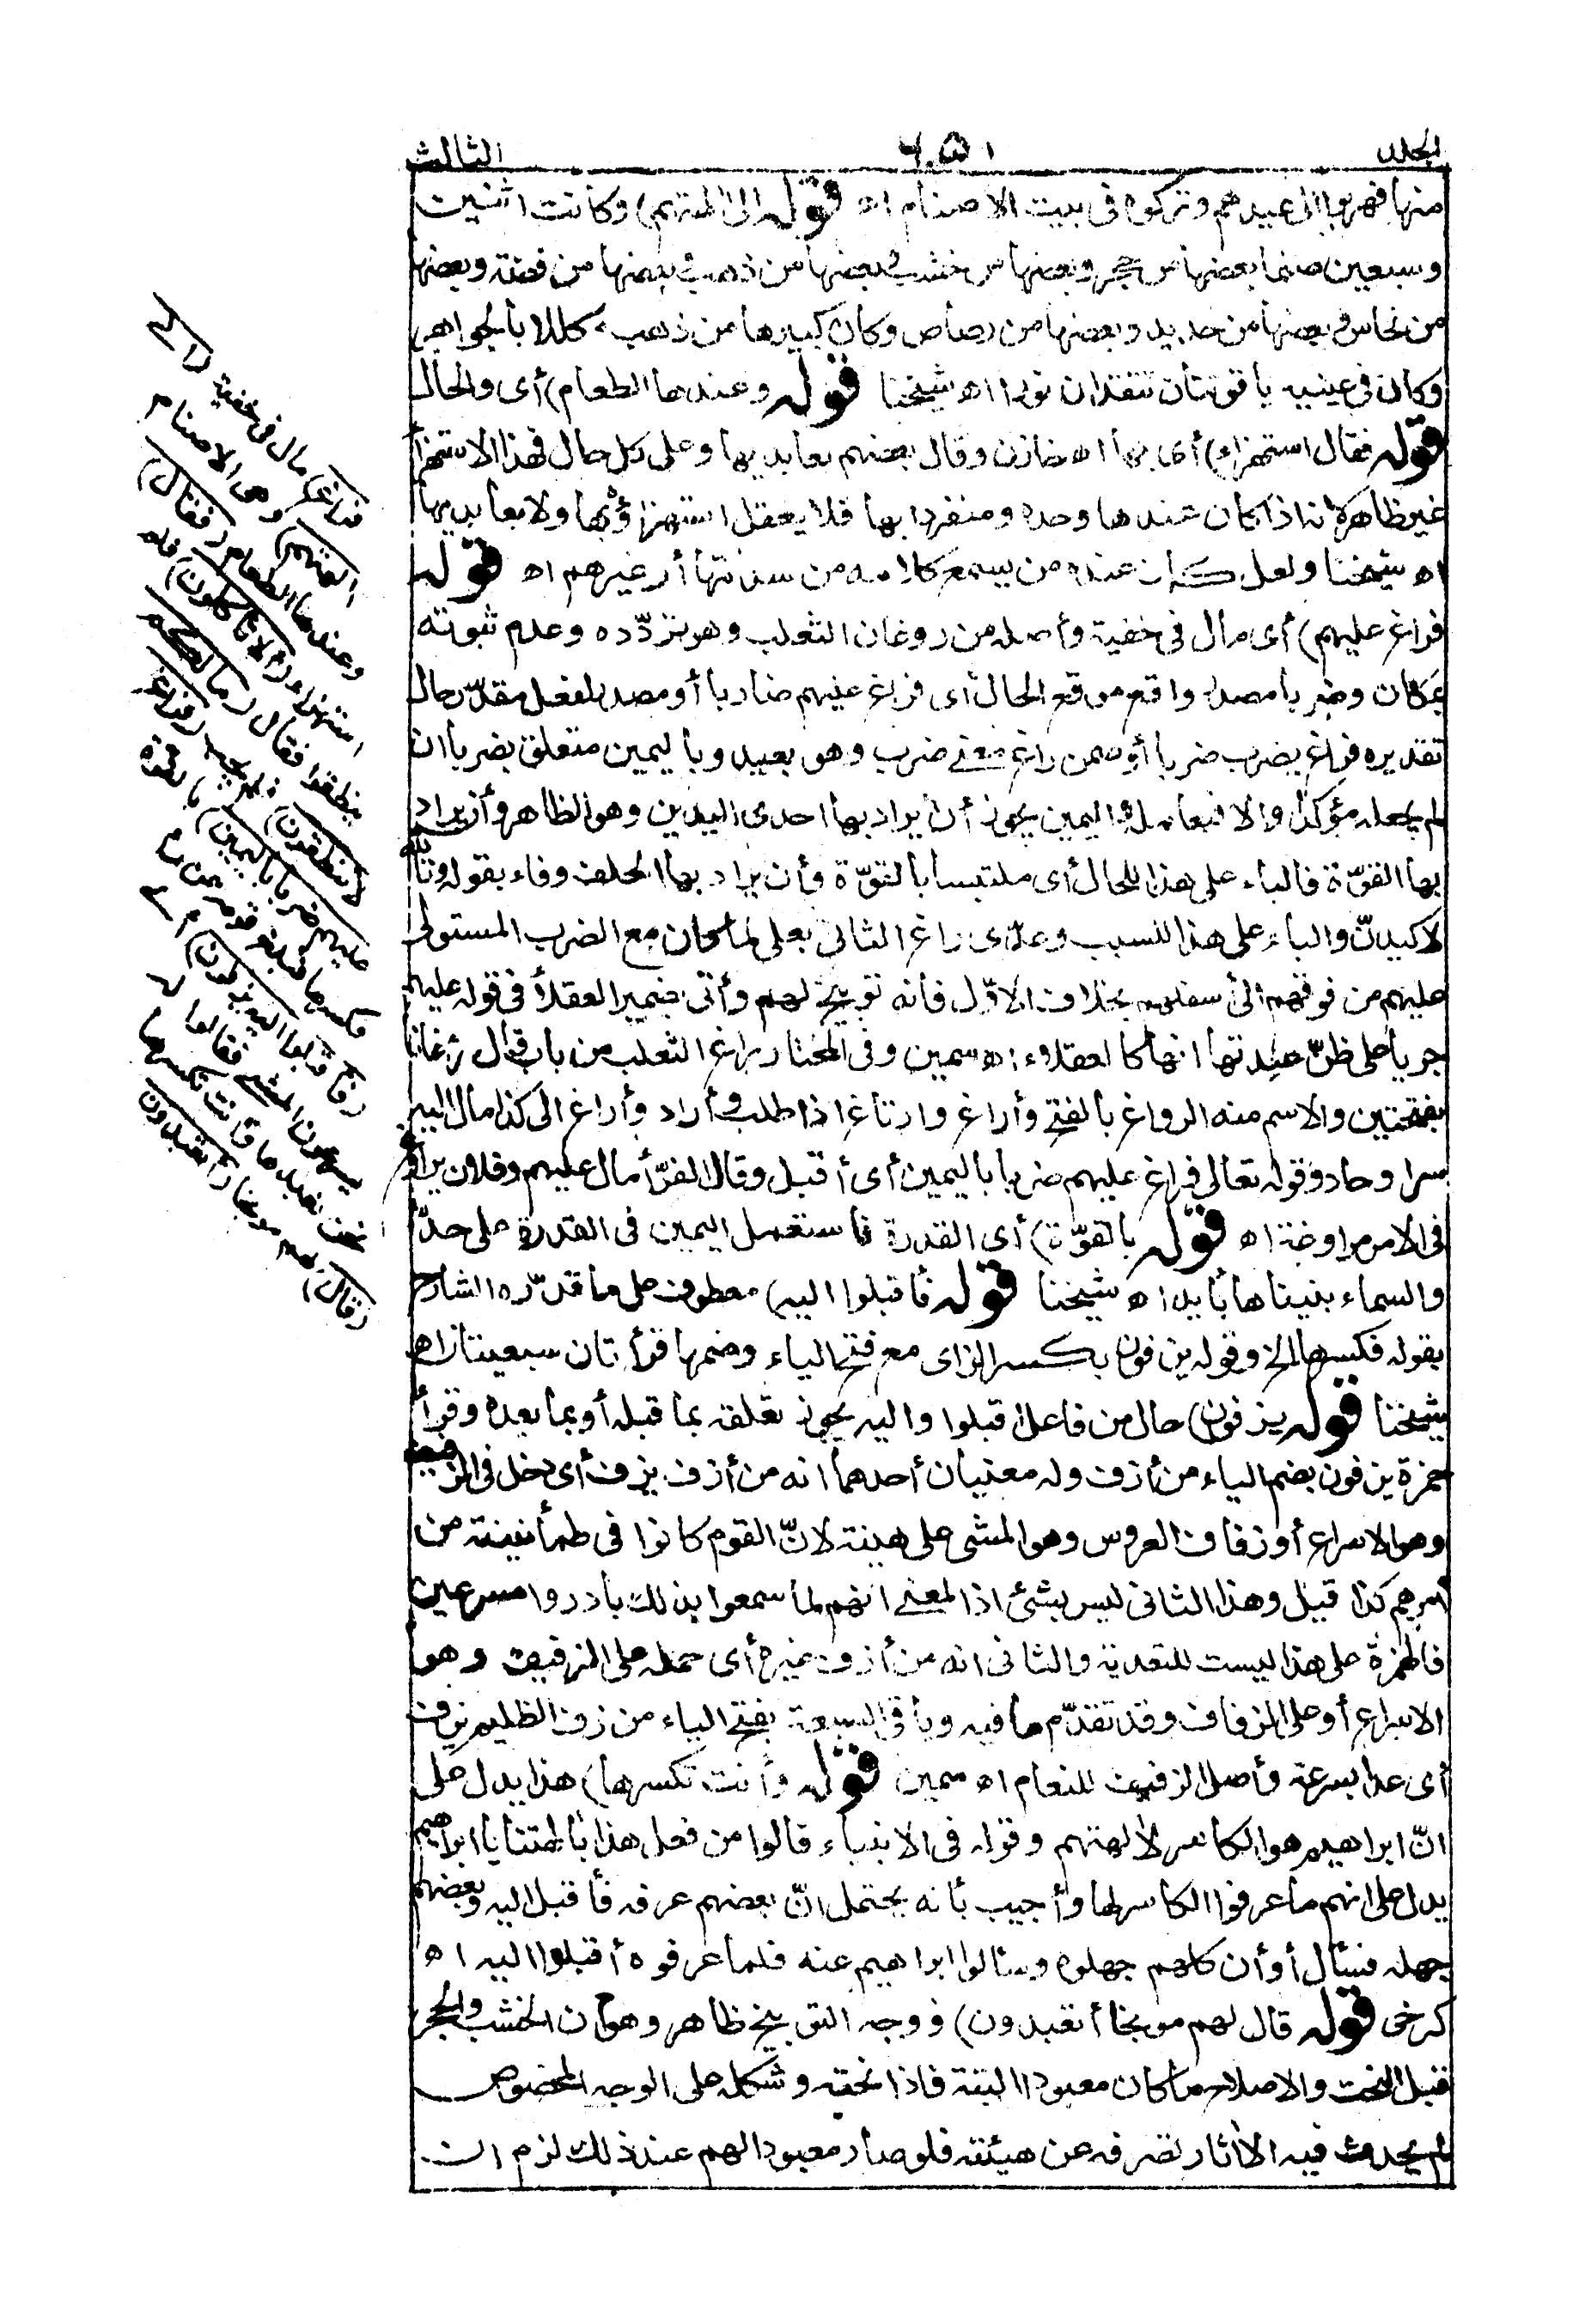 المجلد ٦٥١ الثالث
منها فهربوا الى عيدهم وتركوه فى بيت الاصنام اه قوله الى آلهتهم) وكانت اثنين
وسبعين صنما بعضها من حجر وبعضها من خشب وبعضها من ذهب وبعضها من فضة وبعضها
من نحاس وبعضها من حديد وبعضها من رصاص وكان كبيرها من ذهب مكللا بالجواهر
وكان فى عينيه ياقوتتان تتقدان نورا اه شيخنا قوله وعندها الطعام) أى والحال
قوله فقال استهزاء) أى بها اه خازن وقال بعضهم بعابديها وعلى كل حال فهذا الاستهزأ
غير ظاهر لانه اذا كان عندها وحده ومنفردا بها فلا يعقل استهزاؤ بها ولا بعابديها
اه شيخنا ولعل كان عنده من يسمع كلامه من سدنتها أو غيرهم اه قوله
فراغ عليهم) أى مال فى خفية وأصله من روغان الثعلب وهو تردّده وعدم ثبوته
بمكان وضربا مصدر واقع موقع الحال أى فراغ عليهم ضاربا أو مصدر لفعل مقدّر حال
تقديره فراغ يضرب ضربا أو ضمن راغ معنى ضرب وهو بعيد وباليمين متعلق بضربا ان
لم يجعله مؤكدا والا فبعامله واليمين يجوز أن يراد بها احدى اليدين وهو الظاهر وأن يراد
بها القوّة فالباء على هذا للحال أى ملتبسا بالقوّة وأن يراد بها الحلف وفاء بقوله وتالله
لاكيدنّ والباء على هذا للسبب وعدّى راغ الثانى بعلى لما كان مع الضرب المستولى
عليهم من فوقهم الى أسفلهم بخلاف الاوّل فانه توبيخ لهم وأتى بضمير العقلأ فى قوله عليهم
جريا على ظنّ عبدتها انها كالعقلاء اه سمين وفى المختار راغ الثعلب من باب قال روغانا
بفتحتين والاسم منه الرواغ بالفتح وأراغ وارتاغ اذا طلب وأراد وأراغ الى كذا مال اليه
سرا وحاد وقوله تعالى فراغ عليهم ضربا باليمين أى أقبل وقال الفرّأ مال عليهم وفلان يراوغ
فى الامر مراوغة اه قوله بالقوّة) أى القدرة فاستعمل اليمين فى القدرة على حدّ
والسماء بنيناها بأيد اه شيخنا قوله فأقبلوا اليه) معطوف على ما قدّره الشارح
بقوله فكسرها الخ وقوله يزفون بكسر الزاى مع فتح الياء وضمها قرأتان سبعيتان اه
شيخنا قوله يزفون) حال من فاعل اقبلوا واليه يجوز تعلقه بما قبله أو بما بعده وقرأ
حمزة يزفون بضم الياء من أزف وله معنيان أحدهما انه من أزف يزف أى دخل فى الزفيف
وهو الاسراع أو زفاف العروس وهو المشى على هينة لانّ القوم كانوا فى طمأنينة من
أمرهم كذا قيل وهذا الثانى ليس بشئ اذ المعنى انهم لما سمعوا بذلك بادروا مسرعين
فالهمزة على هذا ليست للتعدية والثانى انه من أزف غيره أى حمله على الزفيف وهو
الاسراع أو على الزفاف وقد تقدّم ما فيه وباقى السبعة بفتح الياء من زف الظليم يزف
أى عدا بسرعة وأصل الزفيف للنعام اه سمين قوله وأنت تكسرها) هذا يدل على
انّ ابراهيم هو الكاسر لآلهتهم وقوله فى الانبياء قالوا من فعل هذا بآلهتنا يا ابراهيم
يدل على انهم ما عرفوا الكاسر لها وأجيب بأنه يحتمل انّ بعضهم عرفه فأقبل اليه وبعضهم
جهله فسأل أو أن كلهم جهلوه وسألوا ابراهيم عنه فلما عرفوه أقبلوا اليه اه
كرخى قوله قال لهم موبخا أتعبدون) ووجه التوبيخ ظاهر وهو أن الخشب والحجر
قبل النحت والاصلاح ما كان معبودا البتة فاذا نحته وشكله على الوجه المخصوص
لم يحدث فيه الا آثار تصرفه عن هيئته فلو صار معبودا لهم عند ذلك لزم ان
فراغ) مال فى خفية (الى
آلهتهم) وهى الاصنام
وعندها الطعام (فقال)
استهزاء (ألا تأكلون) فلم
ينطقوا فقال (ما لكم
لا تنطقون) فلم يجب (فراغ
عليهم ضربا باليمين) بالقوة
فكسرها فبلغ قومه من رآه
(فأقبلوا اليه يزفون) أى
يسرعون المشى فقالوا له
نحن نعبدها وأنت تكسرها
(قال) لهم موبخا (أتعبدون